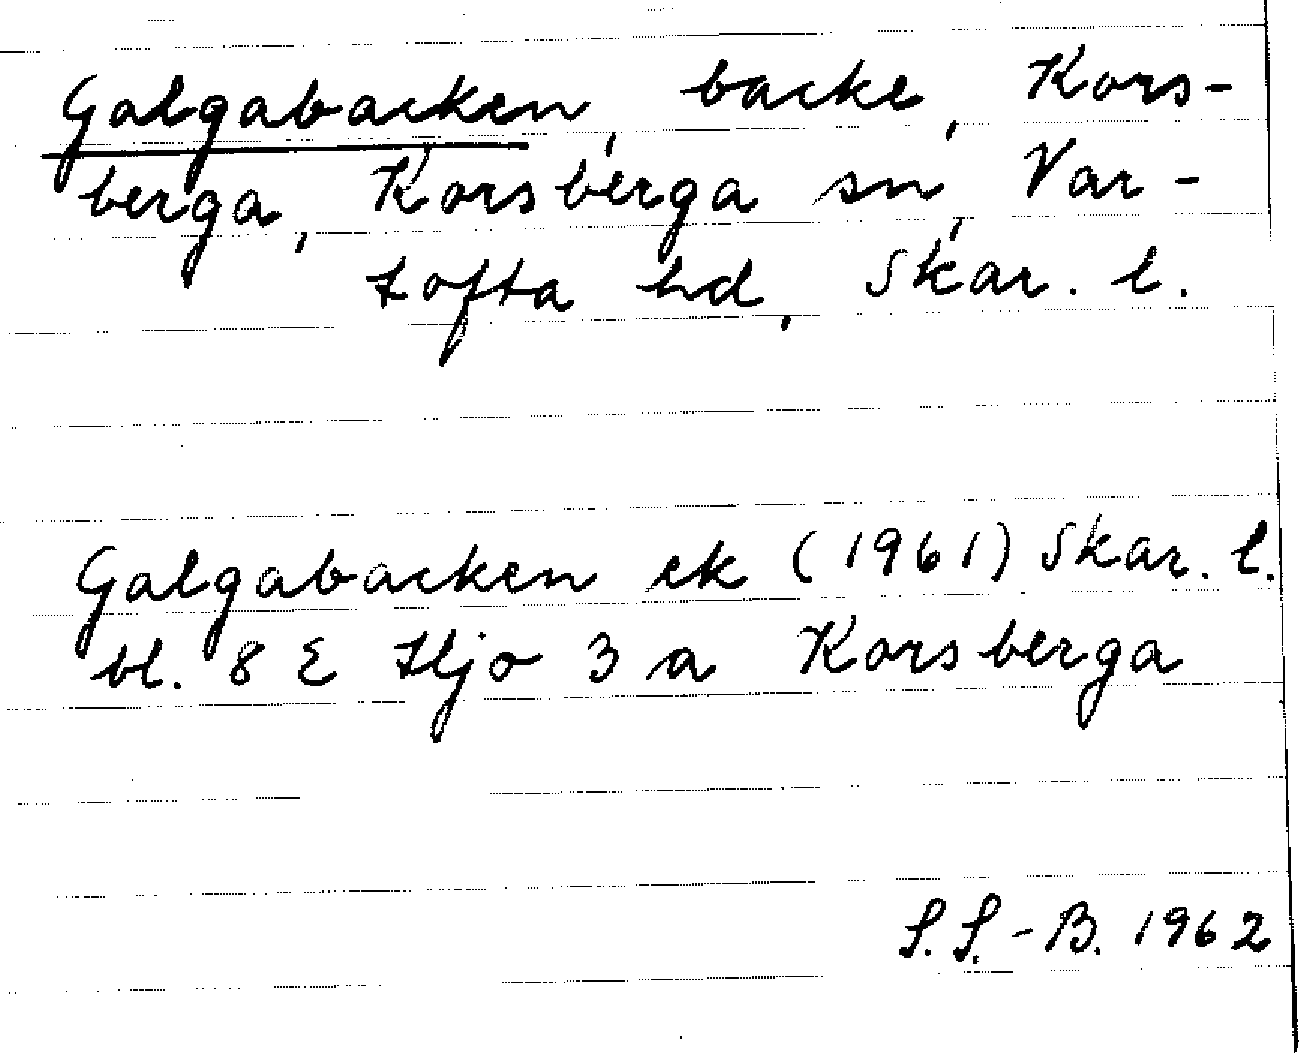 Galgabacken, backe, Kors-
berga, Korsberga sn, Var-
tofta hd, Skar. l.
Galgabacken ek (1961) Skar. l.
bl. 8 E Hjo 3 a Korsberga
S. S.-B. 1962